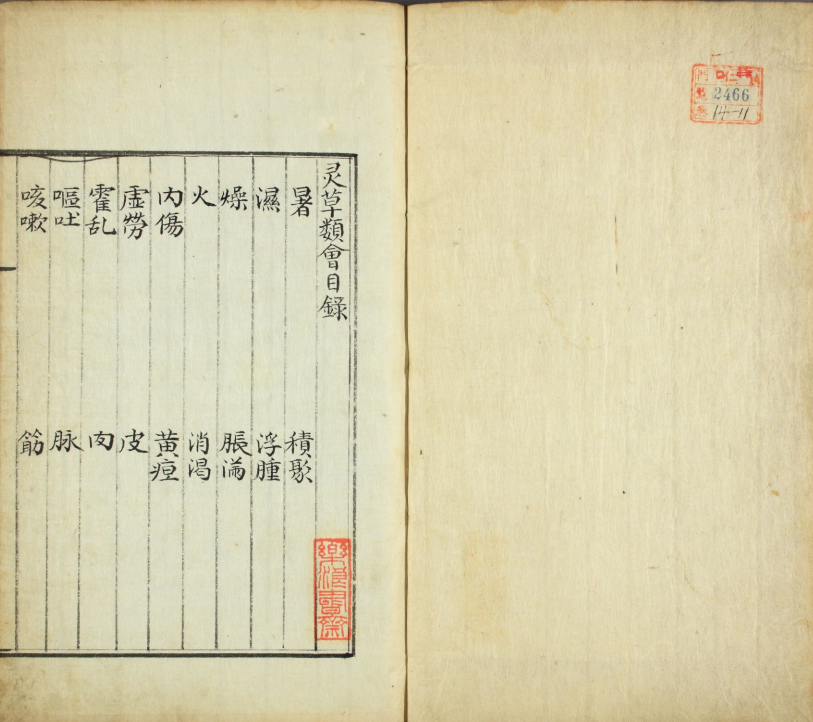 2466
14-11
灵草類會目錄
暑 積聚
濕 浮腫
燥 脹满
火 消渇
内傷 黄疸
虚勞 皮
霍乱 肉
嘔吐 脉
咳嗽 筋
樂浪書齋